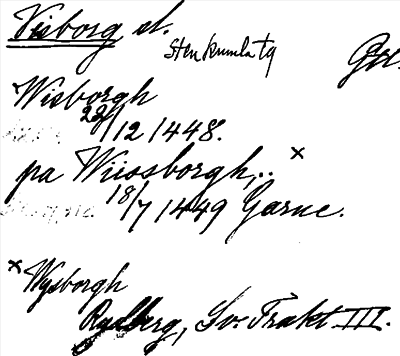 Visborg sl.
Stenkumla tg Gotl.
Wisborgh
22/12 1448.
pa Wiissborgh,.. x
18/7 1449 Garne.
x Wysborgh
Rydberg, Sv. Trakt III.